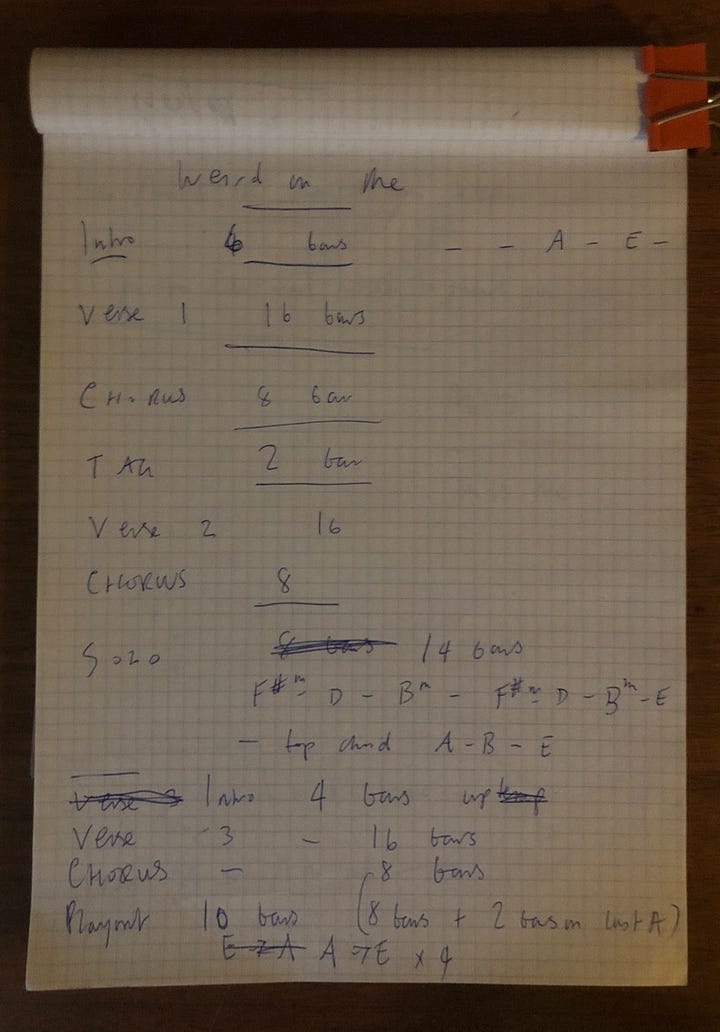 Weird on the
Intro 6 bars – – A – E –
Verse 1 16 bars
CHORUS 8 bar
TAG 2 bar
Verse 2 16
CHORUS 8
SOLO 8 bars 14 bars
F#m – D – Bm – F#m – D – Bm – E
– top chord A – B – E
Verse 3 Intro 4 bars up
Verse 3 – 16 bars
CHORUS – 8 bars
Playout 10 bars (8 bars + 2 bars on last A)
E → A A → E x 4